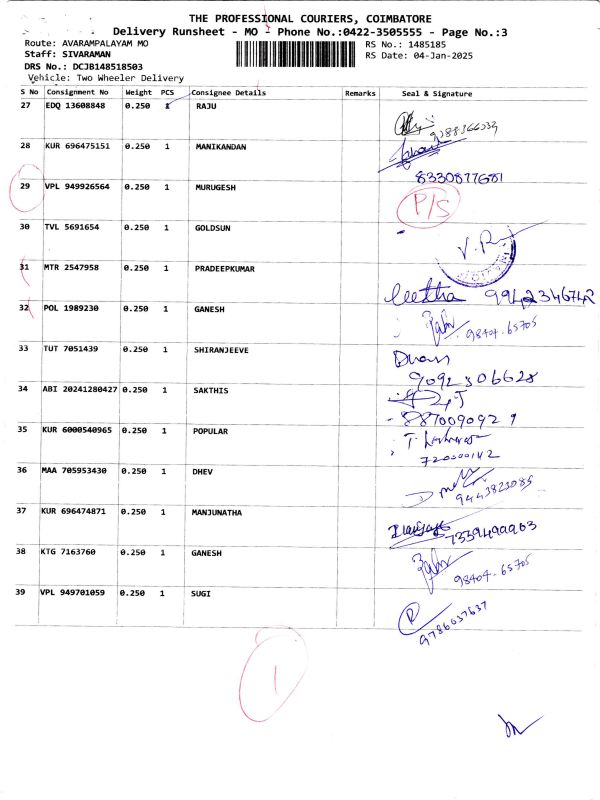 THE PROFESSIONAL COURIERS, COIMBATORE
Delivery Runsheet - MO - Phone No.:0422-3505555 - Page No.:3
Route: AVARAMPALAYAM MO RS No.: 1485185
Staff: SIVARAMAN RS Date: 04-Jan-2025
DRS No.: DCJB148518503
Vehicle: Two Wheeler Delivery
S No Consignment No Weight PCS Consignee Details Remarks Seal & Signature
27 EDQ 13608848 0.250 1 RAJU
28 KUR 696475151 0.250 1 MANIKANDAN
8330877681
29 VPL 949926564 0.250 1 MURUGESH P/S
30 TVL 5691654 0.250 1 GOLDSUN
31 MTR 2547958 0.250 1 PRADEEPKUMAR
Geetha 9942346742
32 POL 1989230 0.250 1 GANESH
98404.65705
33 TUT 7051439 0.250 1 SHIRANJEEVE
9092306628
34 ABI 20241280427 0.250 1 SAKTHIS
35 KUR 6000540965 0.250 1 POPULAR
36 MAA 705953430 0.250 1 DHEV
9443823085
37 KUR 696474871 0.250 1 MANJUNATHA
38 KTG 7163760 0.250 1 GANESH
98404.65705
39 VPL 949701059 0.250 1 SUGI
9786037637
1